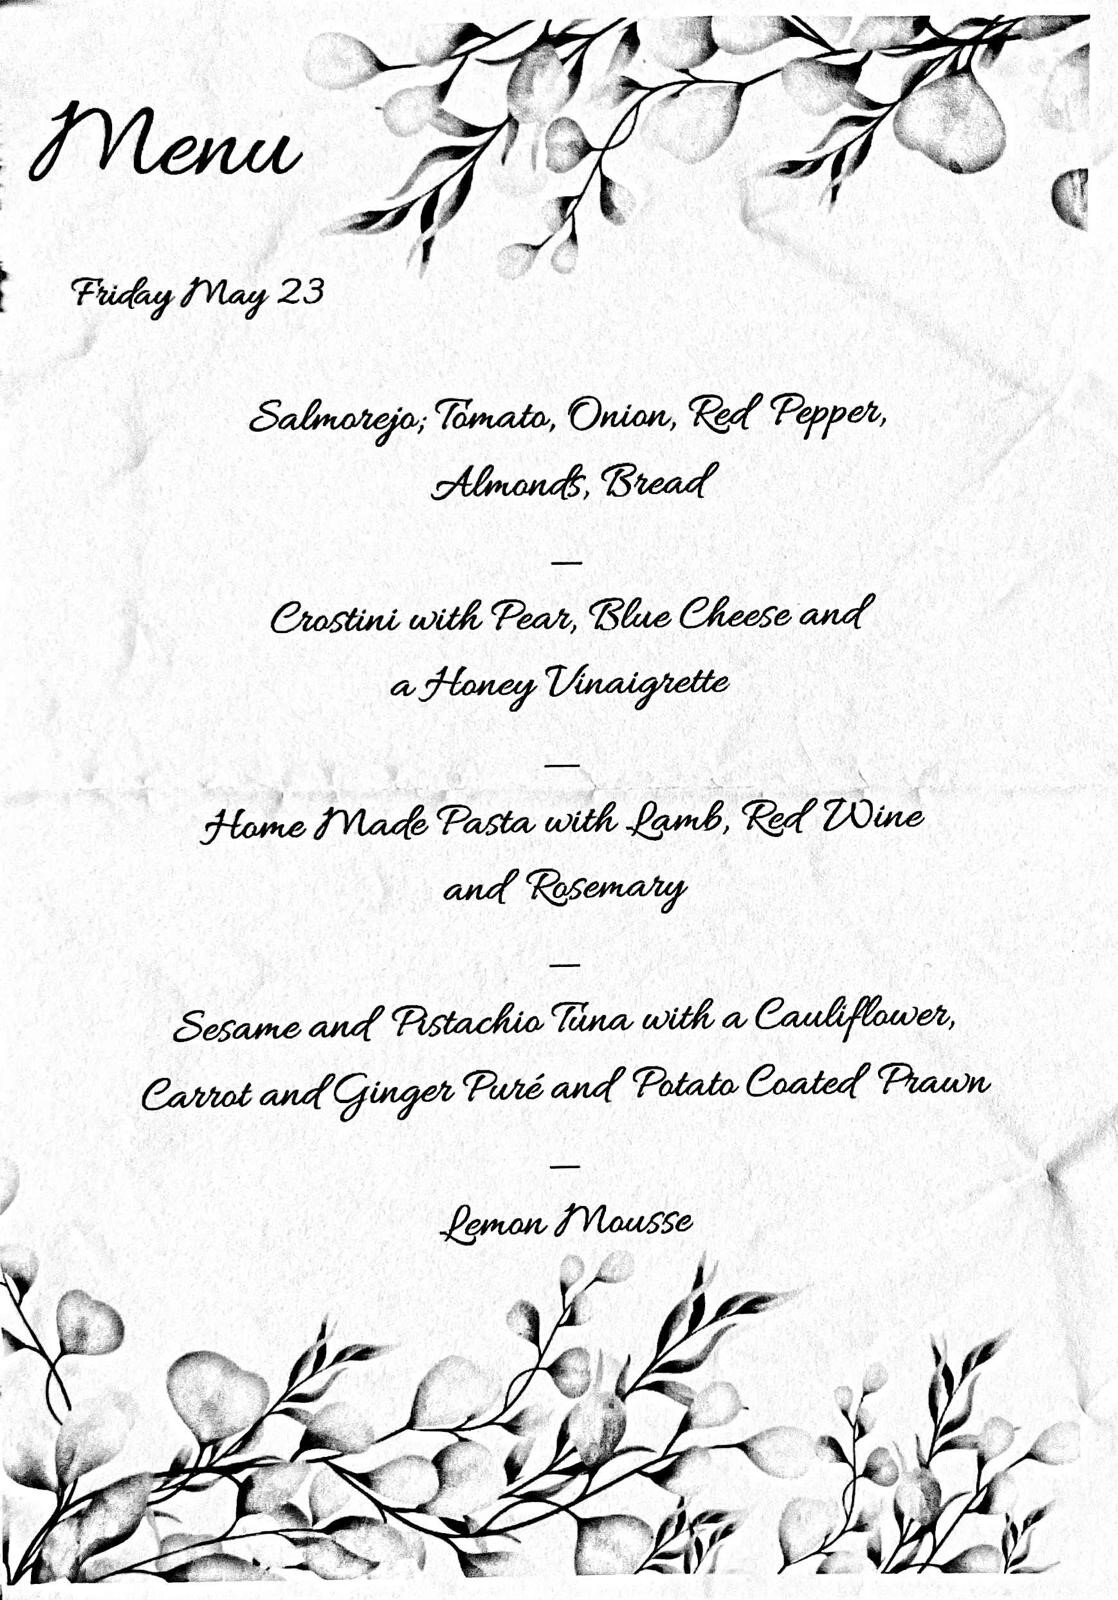 Menu
Friday May 23
Salmorejo; Tomato, Onion, Red Pepper,
Almonds, Bread
—
Crostini with Pear, Blue Cheese and
a Honey Vinaigrette
—
Home Made Pasta with Lamb, Red Wine
and Rosemary
—
Sesame and Pistachio Tuna with a Cauliflower,
Carrot and Ginger Puré and Potato Coated Prawn
—
Lemon Mousse